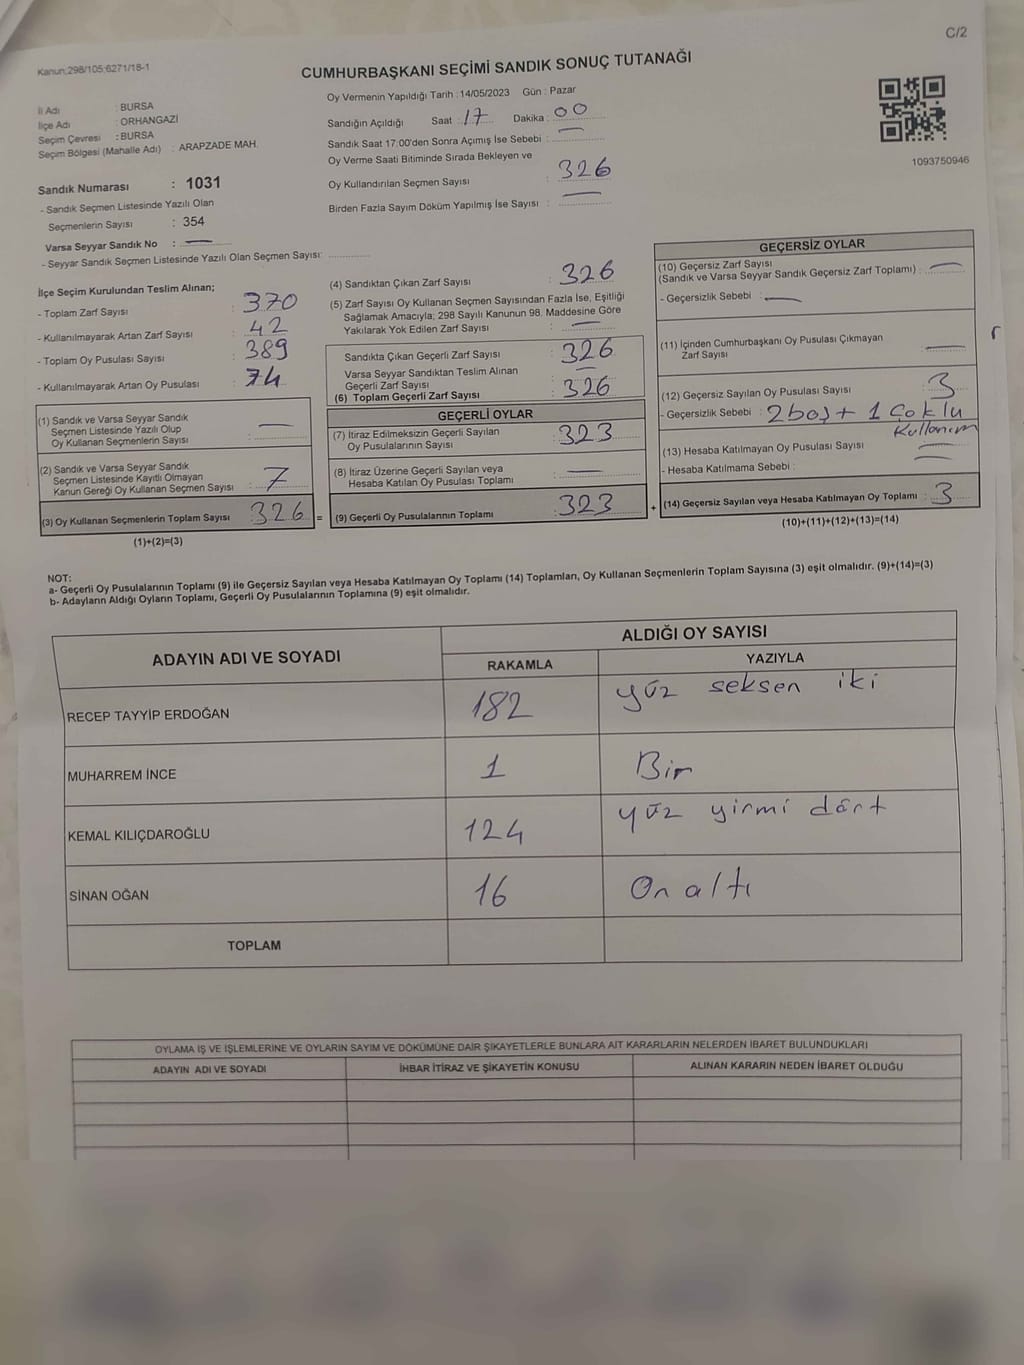 C/2
Kanun;298/105;6271/18-1
CUMHURBAŞKANI SEÇİMİ SANDIK SONUÇ TUTANAĞI
İl Adı : BURSA
İlçe Adı : ORHANGAZİ
Seçim Çevresi : BURSA
Seçim Bölgesi (Mahalle Adı) : ARAPZADE MAH.
Sandık Numarası : 1031
- Sandık Seçmen Listesinde Yazılı Olan
Seçmenlerin Sayısı : 354
Varsa Seyyar Sandık No : —
- Seyyar Sandık Seçmen Listesinde Yazılı Olan Seçmen Sayısı:
Oy Vermenin Yapıldığı Tarih : 14/05/2023 Gün : Pazar
Sandığın Açıldığı Saat : 17 Dakika : 00
Sandık Saat 17:00'den Sonra Açımış İse Sebebi : —
Oy Verme Saati Bitiminde Sırada Bekleyen ve
Oy Kullandırılan Seçmen Sayısı : 326
Birden Fazla Sayım Döküm Yapılmış İse Sayısı : —
1093750946
İlçe Seçim Kurulundan Teslim Alınan;
- Toplam Zarf Sayısı : 370
- Kullanılmayarak Artan Zarf Sayısı : 42
- Toplam Oy Pusulası Sayısı : 389
- Kullanılmayarak Artan Oy Pusulası : 74
(1) Sandık ve Varsa Seyyar Sandık
Seçmen Listesinde Yazılı Olup
Oy Kullanan Seçmenlerin Sayısı : —
(2) Sandık ve Varsa Seyyar Sandık
Seçmen Listesinde Kayıtlı Olmayan
Kanun Gereği Oy Kullanan Seçmen Sayısı : 7
(3) Oy Kullanan Seçmenlerin Toplam Sayısı 326 =
(1)+(2)=(3)
(4) Sandıktan Çıkan Zarf Sayısı : 326
(5) Zarf Sayısı Oy Kullanan Seçmen Sayısından Fazla İse, Eşitliği
Sağlamak Amacıyla; 298 Sayılı Kanunun 98. Maddesine Göre
Yakılarak Yok Edilen Zarf Sayısı : —
Sandıkta Çıkan Geçerli Zarf Sayısı : 326
Varsa Seyyar Sandıktan Teslim Alınan
Geçerli Zarf Sayısı : —
(6) Toplam Geçerli Zarf Sayısı : 326
GEÇERLİ OYLAR
(7) İtiraz Edilmeksizin Geçerli Sayılan
Oy Pusulalarının Sayısı : 323
(8) İtiraz Üzerine Geçerli Sayılan veya
Hesaba Katılan Oy Pusulası Toplamı : —
(9) Geçerli Oy Pusulalarının Toplamı : 323 +
GEÇERSİZ OYLAR
(10) Geçersiz Zarf Sayısı
(Sandık ve Varsa Seyyar Sandık Geçersiz Zarf Toplamı) : —
- Geçersizlik Sebebi : —
(11) İçinden Cumhurbaşkanı Oy Pusulası Çıkmayan
Zarf Sayısı : —
(12) Geçersiz Sayılan Oy Pusulası Sayısı : 3
- Geçersizlik Sebebi : 2 boş + 1 Çoklu
Kullanım
(13) Hesaba Katılmayan Oy Pusulası Sayısı : —
- Hesaba Katılmama Sebebi : —
(14) Geçersiz Sayılan veya Hesaba Katılmayan Oy Toplamı : 3
(10)+(11)+(12)+(13)=(14)
NOT:
a- Geçerli Oy Pusulalarının Toplamı (9) ile Geçersiz Sayılan veya Hesaba Katılmayan Oy Toplamı (14) Toplamları, Oy Kullanan Seçmenlerin Toplam Sayısına (3) eşit olmalıdır. (9)+(14)=(3)
b- Adayların Aldığı Oyların Toplamı, Geçerli Oy Pusulalarının Toplamına (9) eşit olmalıdır.
ADAYIN ADI VE SOYADI ALDIĞI OY SAYISI
RAKAMLA YAZIYLA
RECEP TAYYİP ERDOĞAN 182 yüz seksen iki
MUHARREM İNCE 1 Bir
KEMAL KILIÇDAROĞLU 124 yüz yirmi dört
SİNAN OĞAN 16 On altı
TOPLAM
OYLAMA İŞ VE İŞLEMLERİNE VE OYLARIN SAYIM VE DÖKÜMÜNE DAİR ŞİKAYETLERLE BUNLARA AİT KARARLARIN NELERDEN İBARET BULUNDUKLARI
ADAYIN ADI VE SOYADI İHBAR İTİRAZ VE ŞİKAYETİN KONUSU ALINAN KARARIN NEDEN İBARET OLDUĞU